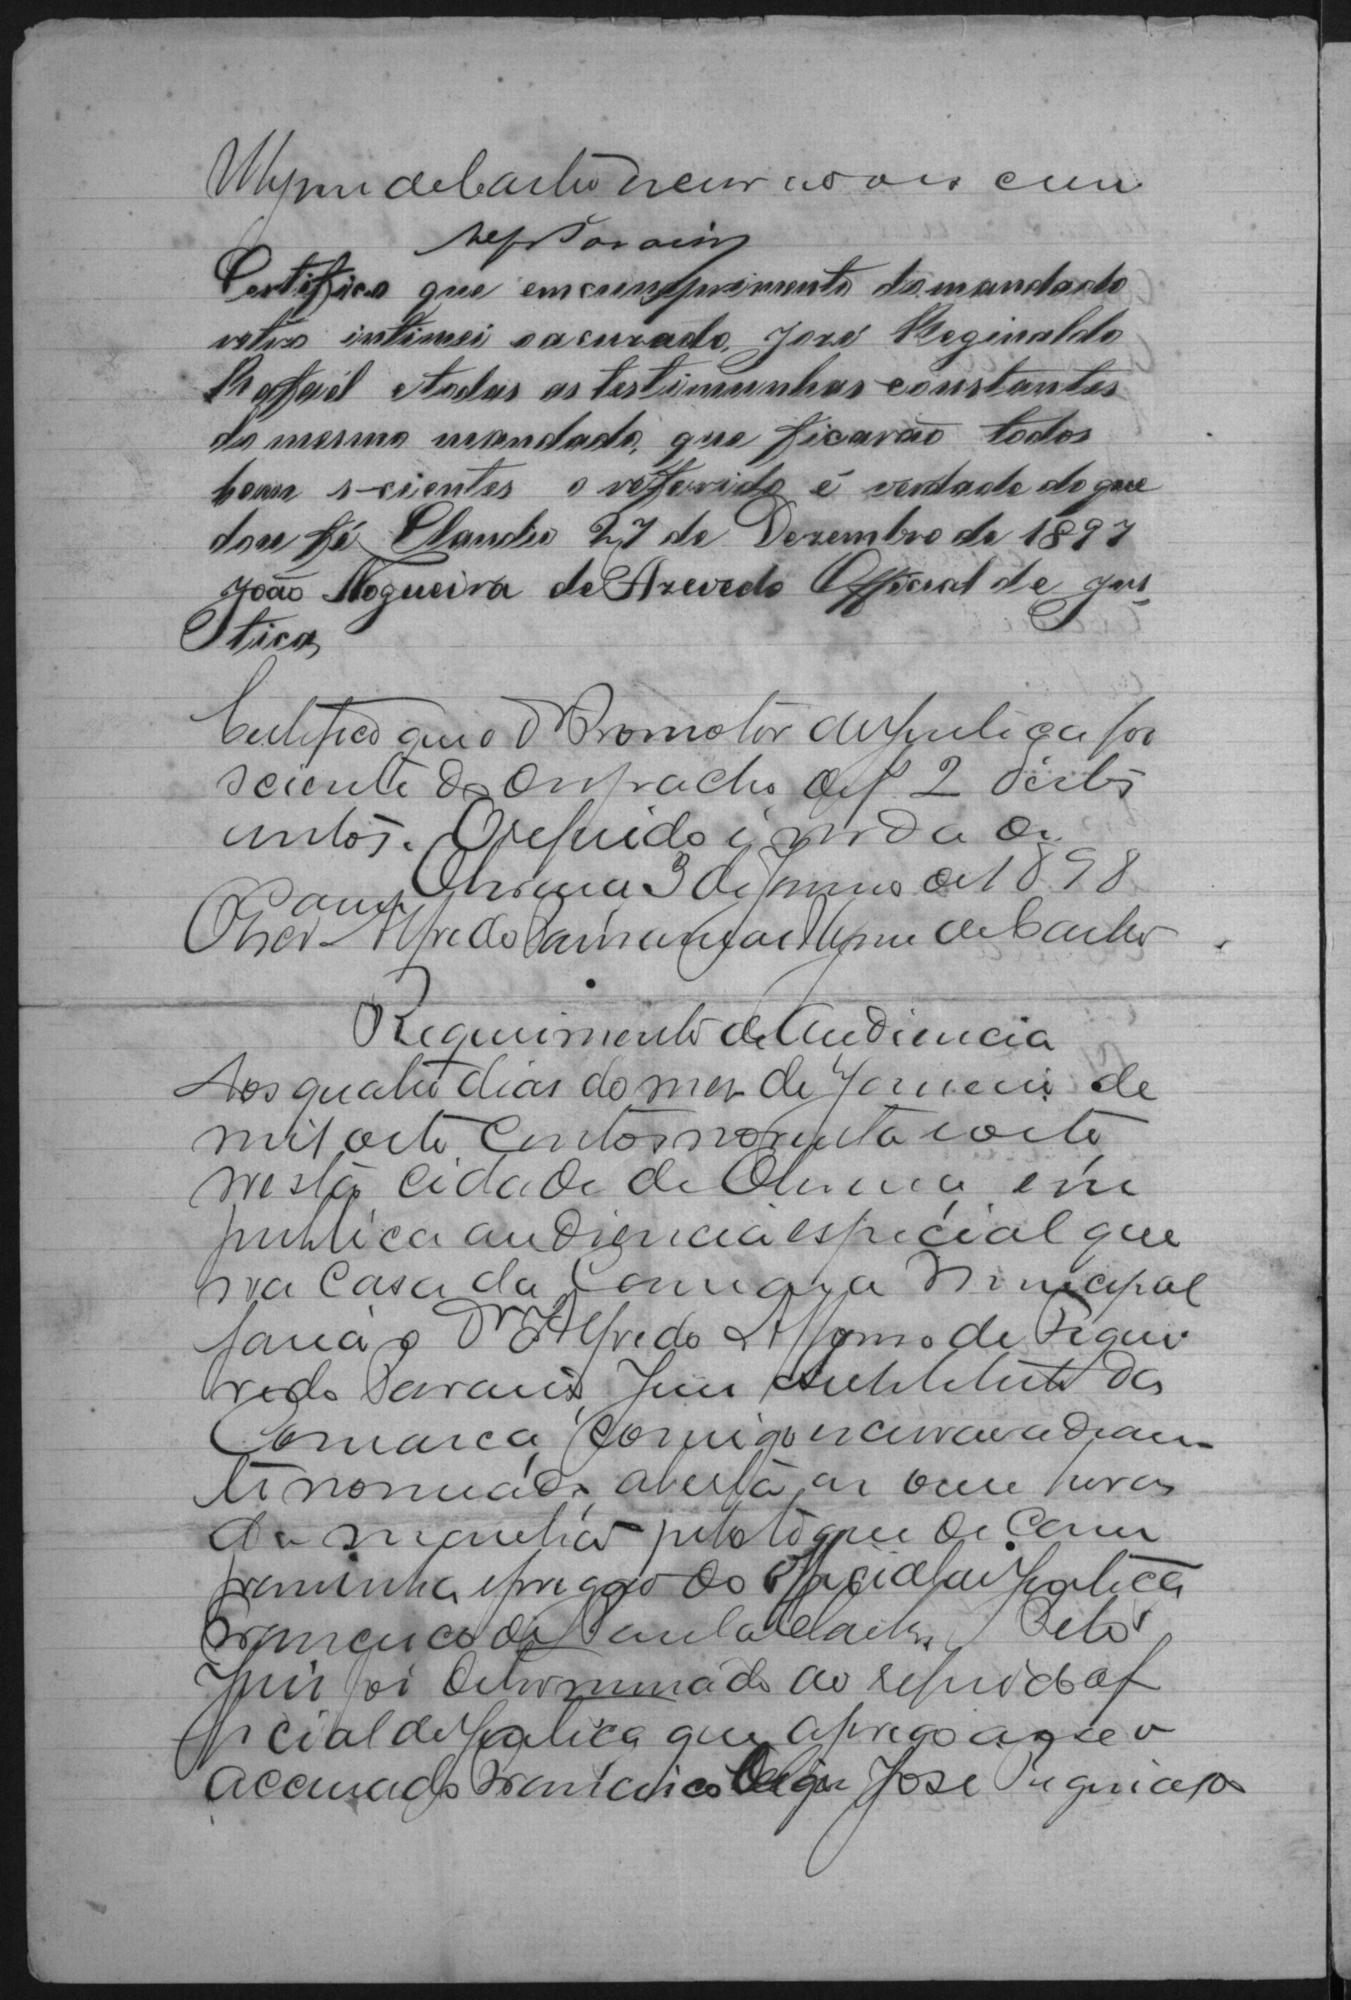 de Castro escrivão o es crevi
Certifico que em cumprimento do mandado
retro intimei o acusado, José Reginaldo
Rafael e todas as testimunhas constantes
do mesmo mandado, que ficarão todos
bem scientes o refferido é verdade do que
dou fé 27 de Dezembro de 1897
João Nogueira de Azevedo Official de Jus
tica
Certifico que o Dr Promotor de Justiça foi
sciente do despacho de f 2 destes
autos. O referido é verda de
3 de Janeiro de 1898
Alfredo de Castro
Requerimento de Audiencia
Aos quatro dias do mez de Janeiro de
mil oito centos noventa e oito
nesta cidade de em
publica audiencia especial que
na Casa da Camara Municipal
fasia o Dr Alfredo Affonso de Figuei
redo Juiz Substituto da
Comarca, comigo escrivão adian
te nomeado, aberta as onze horas
da manhã pelo toque de cam
painha e pregão do official de Justiça
Francisco de Paula Pelo
Juiz foi determinado ao referido of
ficial de Justica que apregoasse o
accusado José